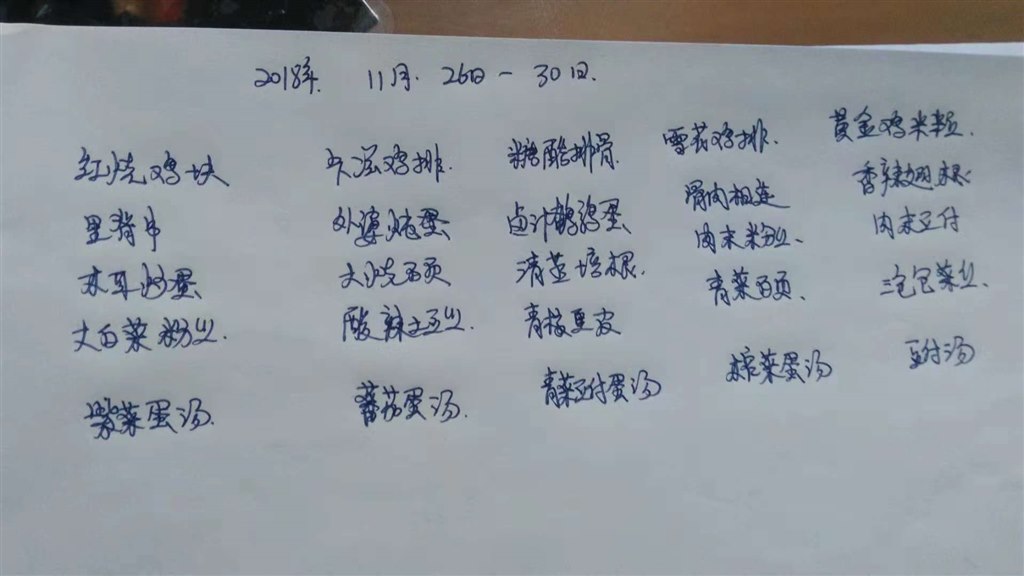 2018年. 11月. 26日-30日.
红烧鸡块 鸡排. 糖醋排骨 雪花鸡排. 黄金鸡米粒.
里脊串 外婆炖蛋 卤汁鹌鹑蛋 骨肉相连 香辣翅根
木耳炒蛋 大烧百页 清蒸培根. 肉末粉丝、 肉末豆付
大白菜粉丝. 酸辣土豆丝. 青椒豆皮 青菜百页. 包菜丝、
紫菜蛋汤. 蕃茄蛋汤. 青菜豆付蛋汤 榨菜蛋汤 豆付汤